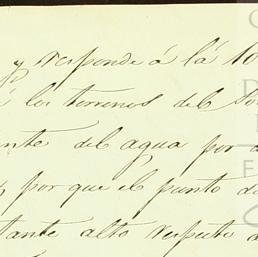 y responde á lá 10
á los terrenos del So
nte del agua por
por que el punto d
tante alto respecto a